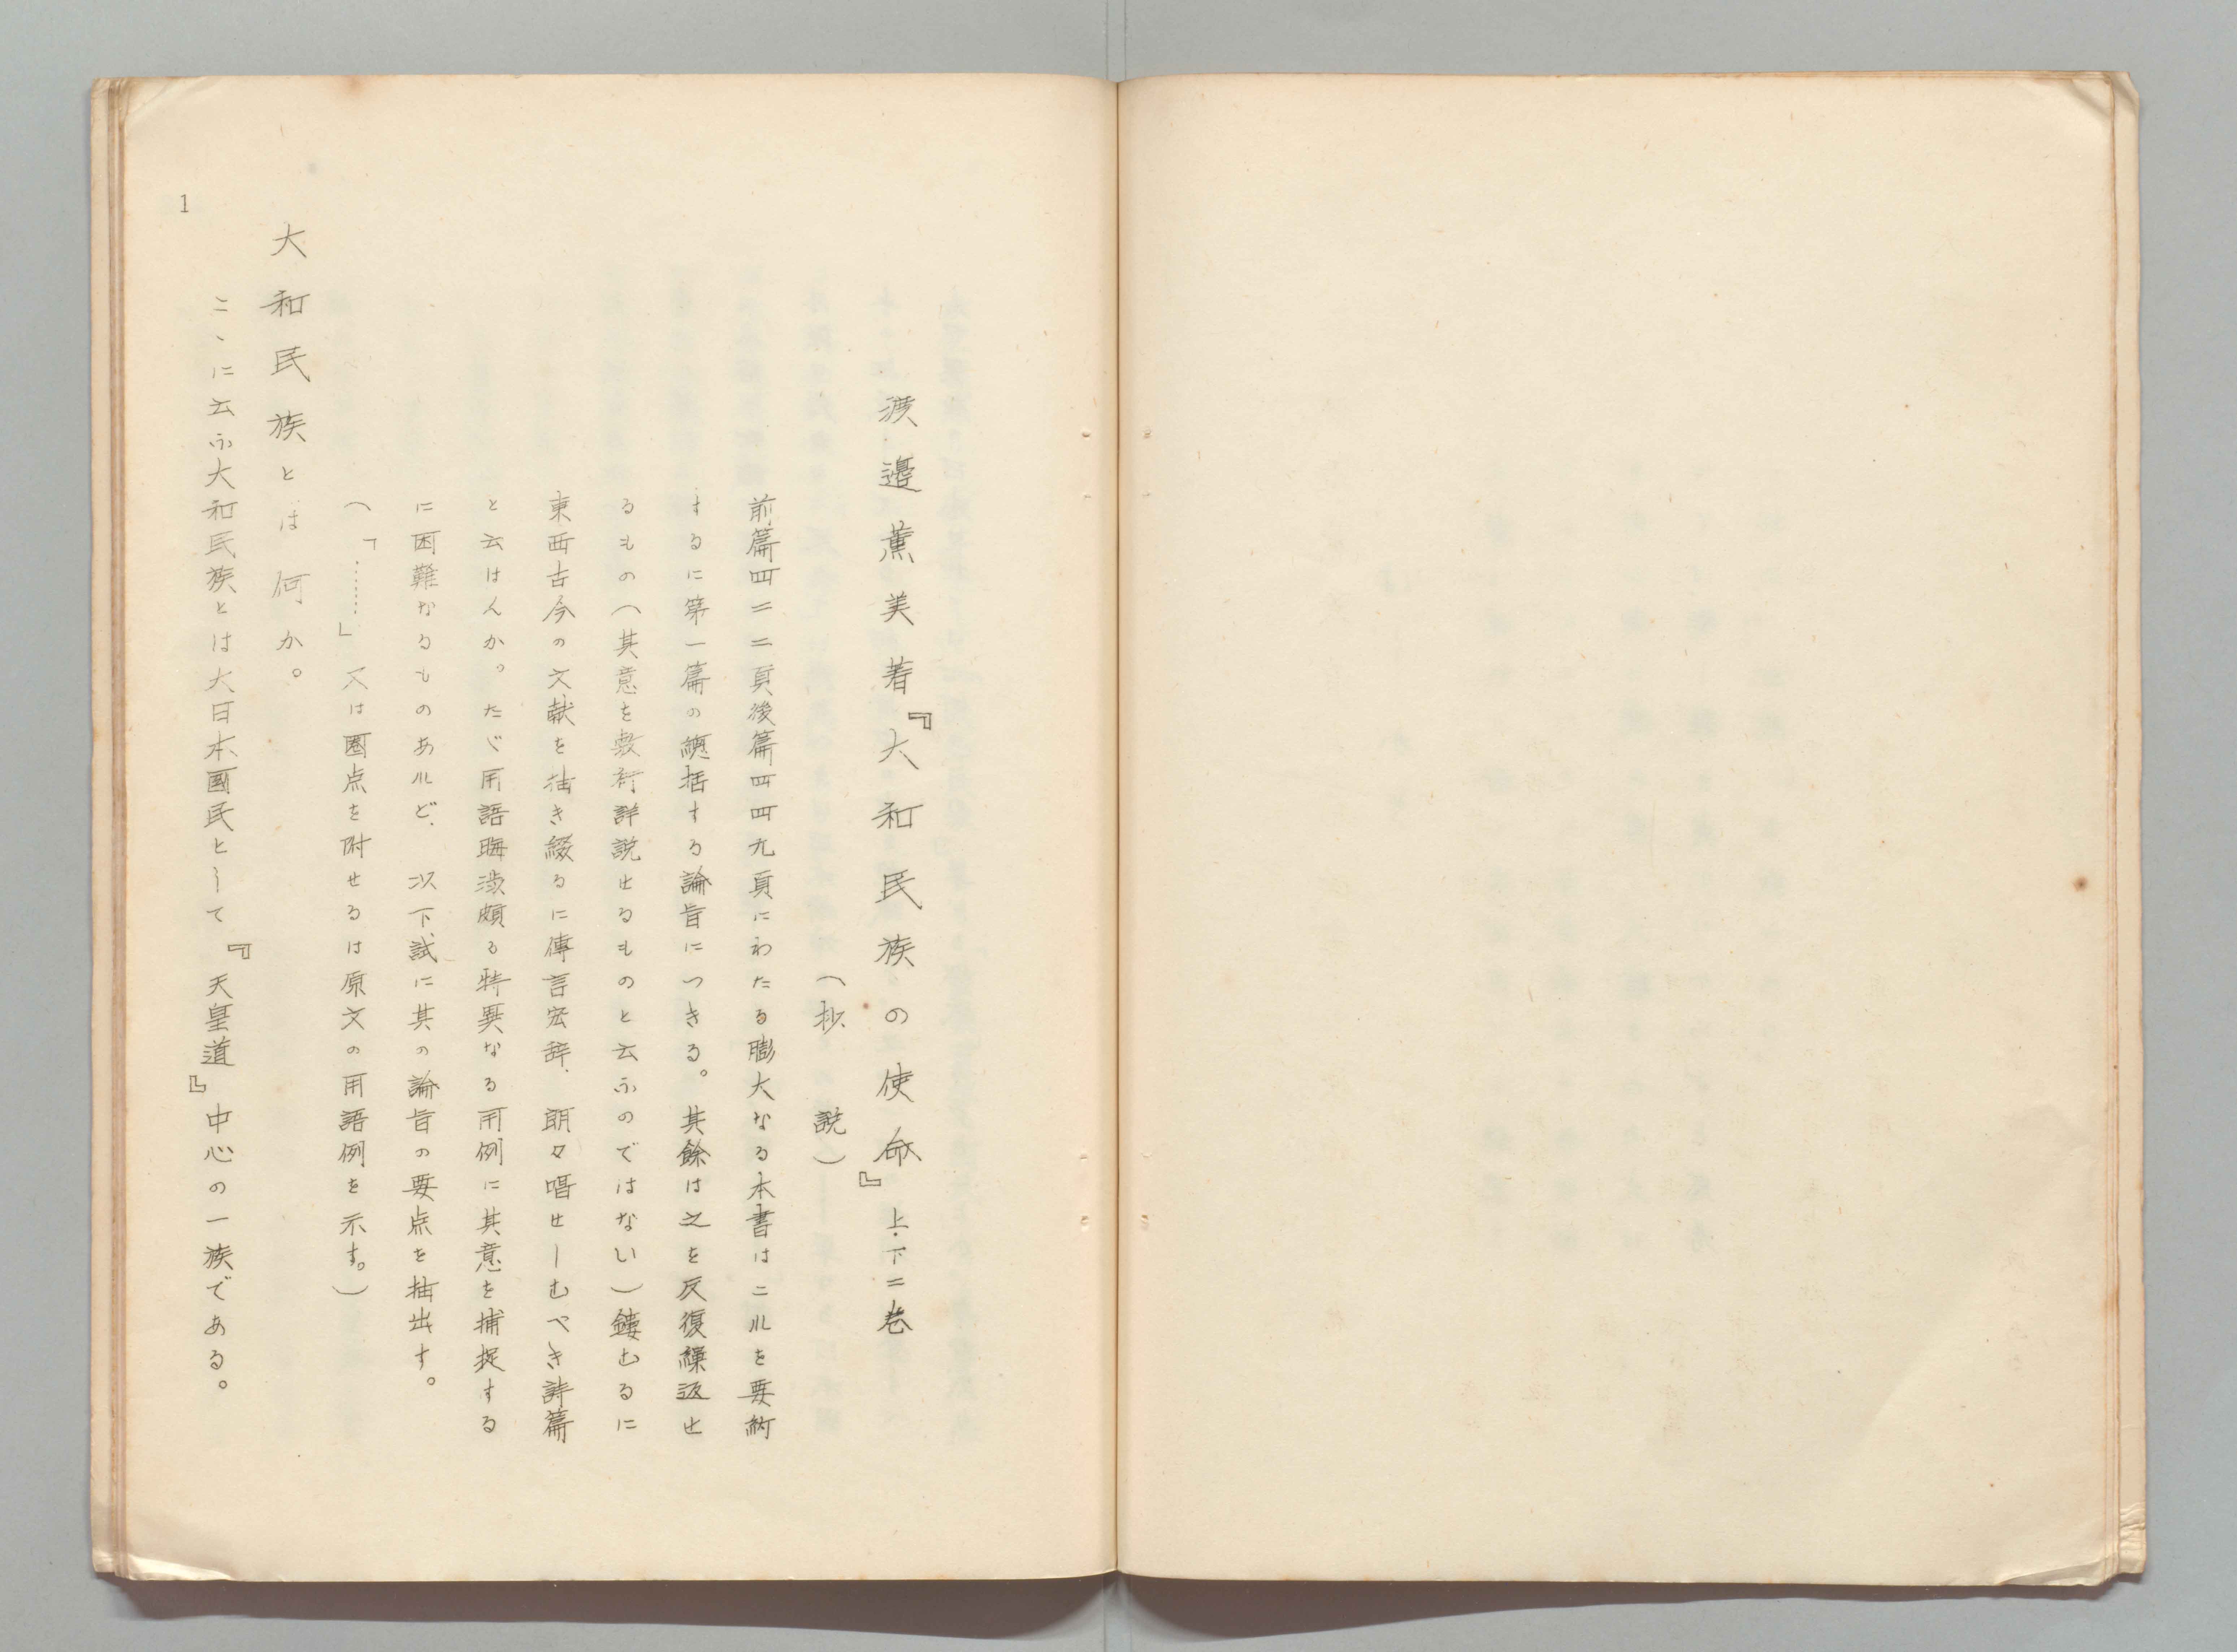 渡邊薫美著『大和民族の使命』上・下二巻
（抄説）
前篇四二二頁後篇四四九頁にわたる膨大なる本書はこれを要約
するに第一篇の總括する論旨につきる。其餘は之を反復繰返せ
るもの（其意を敷衍詳説せるものと云ふのではない）鏤むるに
東西古今の文献を抽き綴るに傳言宏辞、朗々唱せしむべき詩篇
と云はんか。たゞ用語晦渋頗る特異なる用例に其意を捕捉する
に困難なるものあれど、以下、試に其の論旨の要点を抽出す。
（「……」又は圏点を附せるは原文の用語例を示す。）
大和民族とは何か。
こゝに云ふ大和民族とは大日本國民として『天皇道』中心の一族である。
1